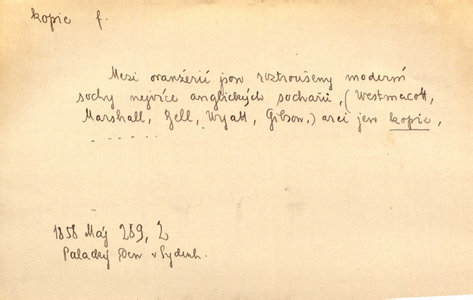 kopie f.
Mezi oranžerií jsou roztroušeny moderní
sochy nejvíce anglických sochařů, (Westmacott,
Marshall, Bell, Wyatt, Gibson,) arci jen kopie,
. . . . . . .
1858 Máj 289, 2
Palacký Den v Sydenh.